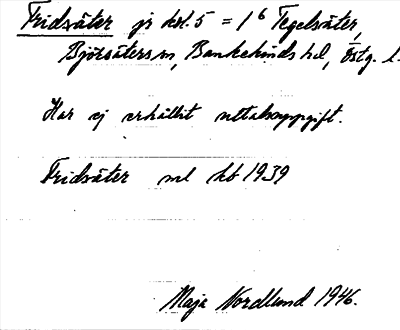 Fridsäter js dsl. 5 = 1⁶ Tegelsäter,
Björsäters sn, Bankekinds hd, Östg. l.
Har ej erhållit uttalsuppgift.
Fridsäter ml hb 1939
Maja Nordlund 1946.